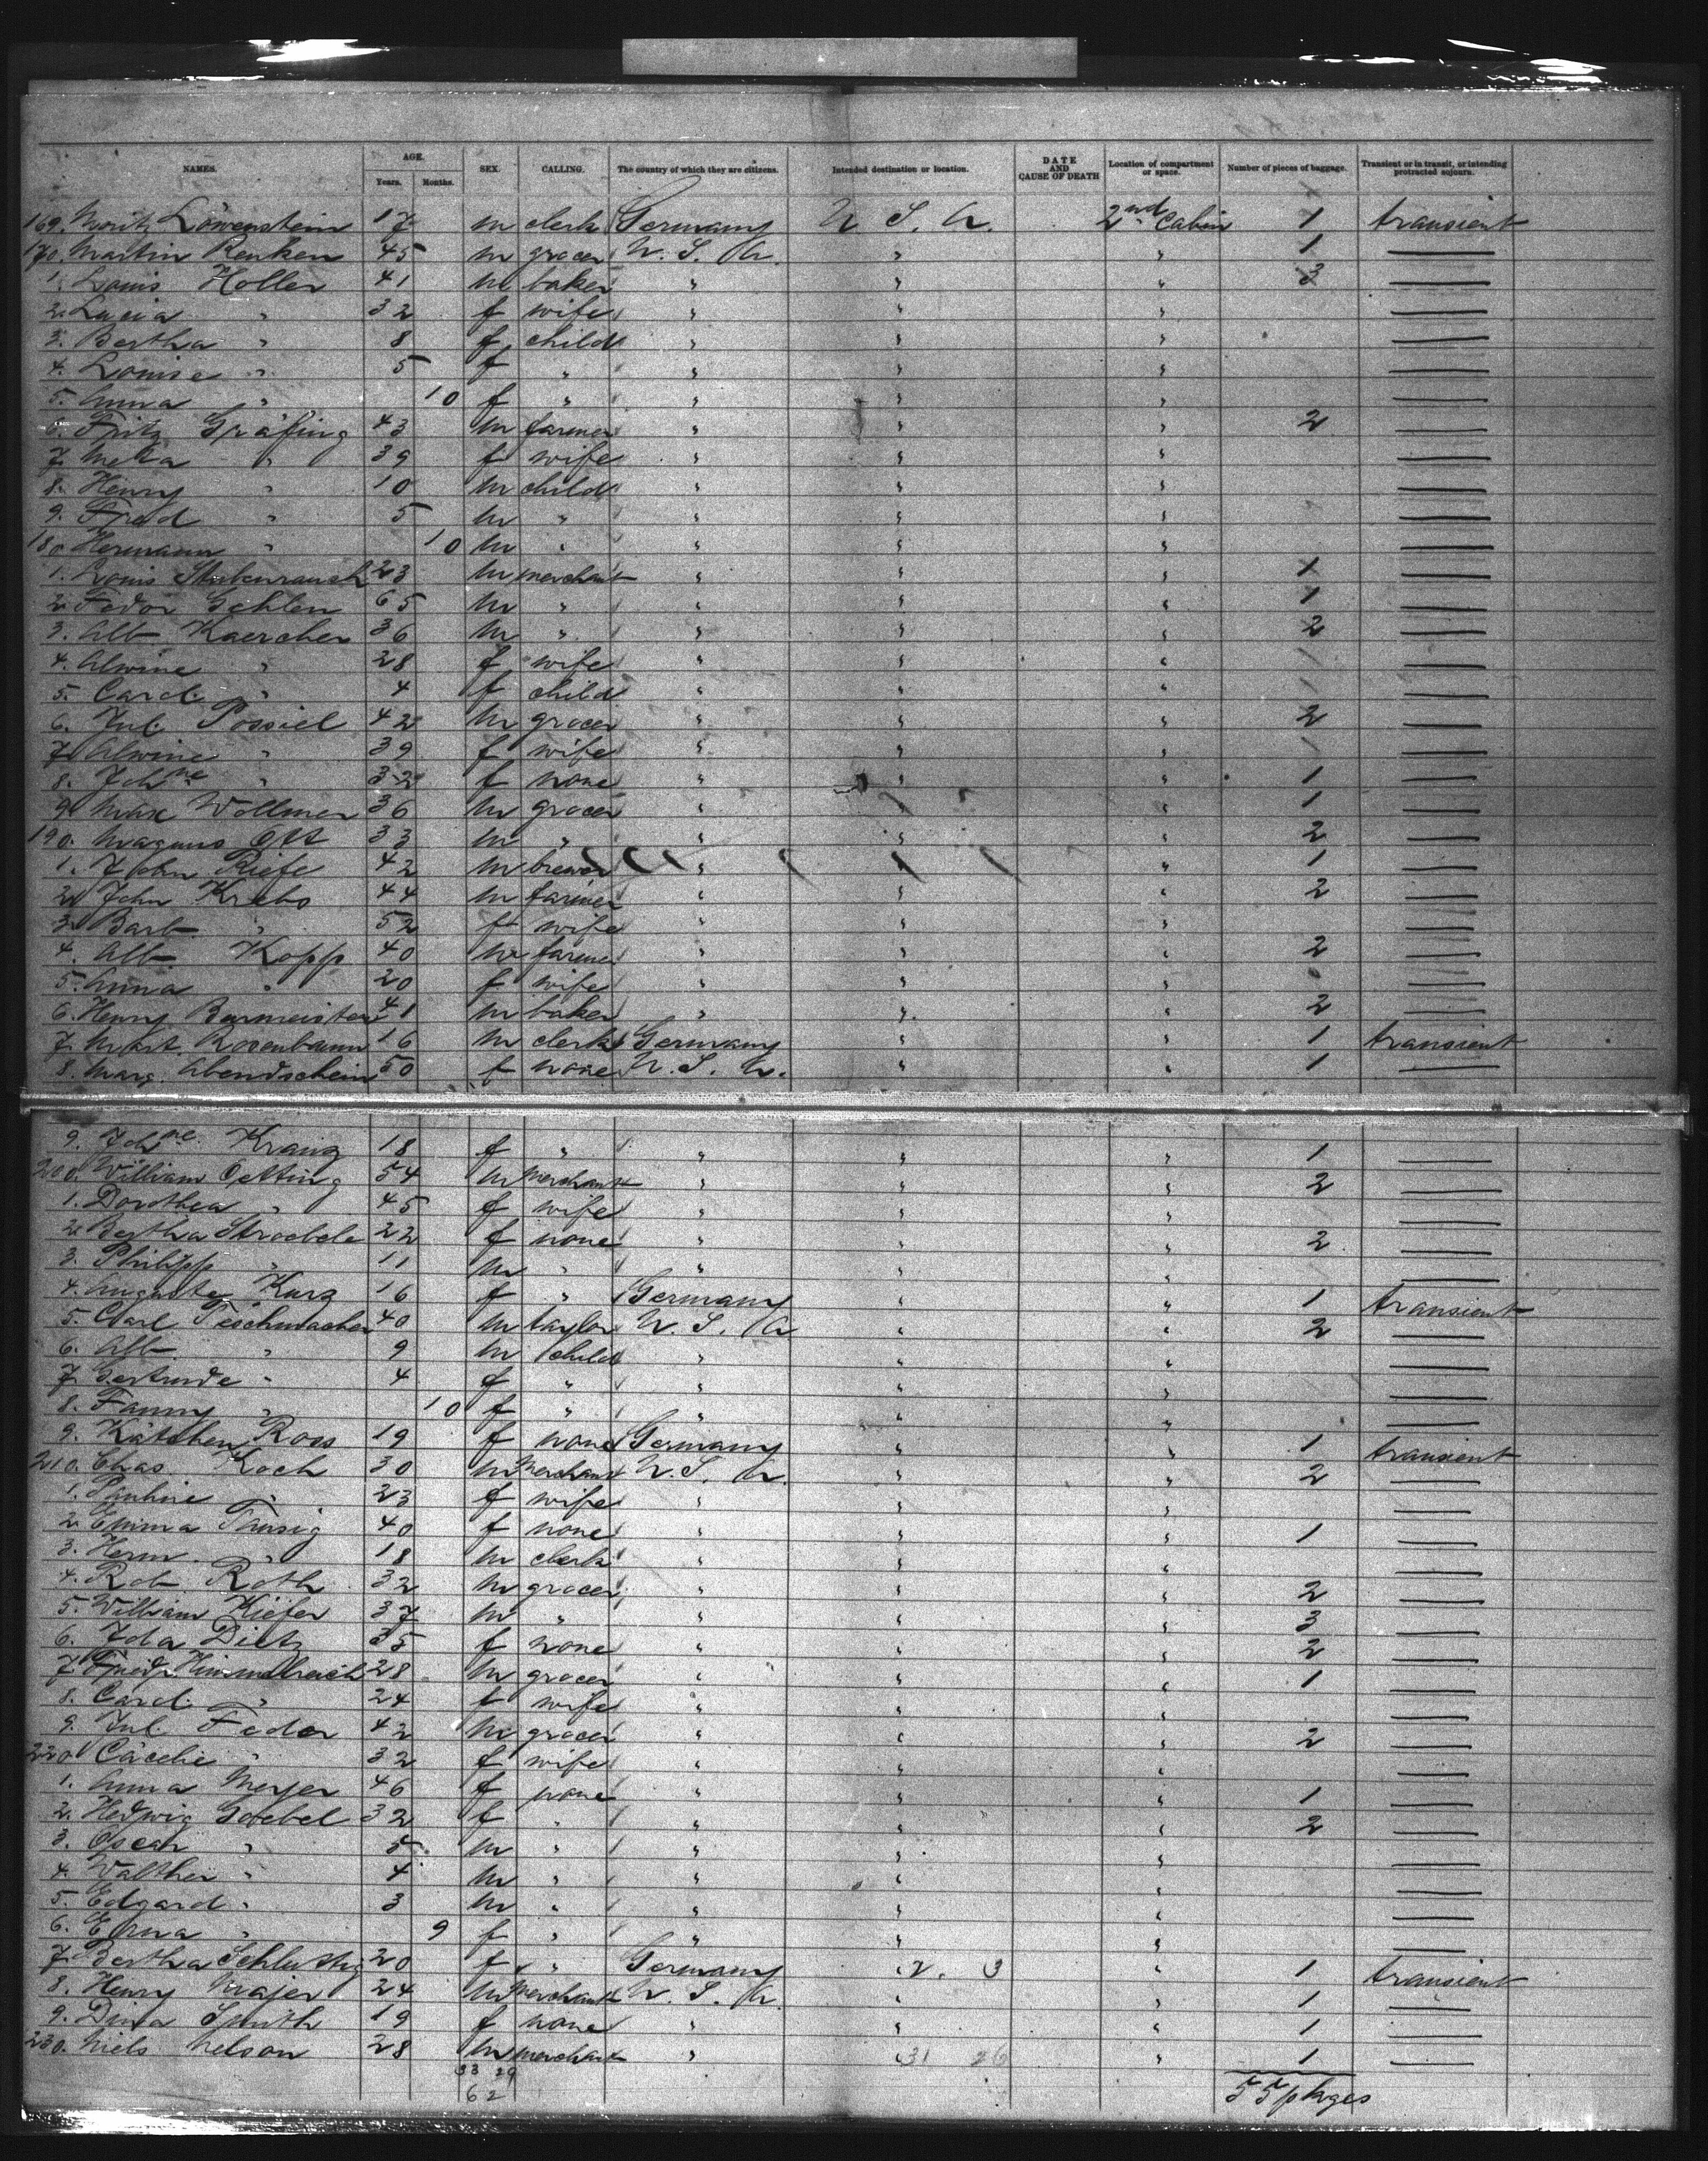 NAMES. AGE. Years. Months. SEX. CALLING. The country of which they are citizens. Intended destination or location. DATE AND CAUSE OF DEATH Location of compartment or space. Number of pieces of baggage. Transient or in transit, or intending protracted sojourn.
169. Moritz Löwenstein 17 m clerk Germany U. S. A. 2nd Cabin 1 transient
170. Martin Renken 45 m grocer U. S. A. " " 1 —
1. Louis Holler 41 m baker " " " 3 —
2. Lucia " 32 f wife " " " —
3. Bertha " 8 f child " " " —
4. Louise " 5 f " " " " —
5. Anna " 10 f " " " " —
6. Fritz Gräfing 43 m farmer " " " 2 —
7. Meta " 39 f wife " " " —
8. Henry " 10 m child " " " —
9. Fred " 5 m " " " " —
180. Hermann " 10 m " " " " —
1. Louis Stubenrauch 23 m merchant " " " 1 —
2. Fedor Gehlen 65 m " " " " 1 —
3. Alb. Kaercher 36 m " " " " 2 —
4. Alwine " 28 f wife " " " —
5. Carol. " 4 f child " " " —
6. Jul. Possiel 42 m grocer " " " 2 —
7. Alwine " 39 f wife " " " —
8. Johne " 32 f none " " " 1 —
9. Max Wollmer 36 m grocer " " " 1 —
190. Magnus Ott 33 m " " " " 2 —
1. John Riefe 42 m brewer " " " 1 —
2. John Krebs 44 m farmer " " " 2 —
3. Barb. " 52 f wife " " " —
4. Alb. Kopp 40 m farmer " " " 2 —
5. Anna " 20 f wife " " " —
6. Henry Burmeister 41 m baker " " " 2 —
7. Mart. Rosenbaum 16 m clerk Germany " " 1 transient
8. Marg. Abendschein 50 f none U. S. A. " " 1 —
9. Johne. Kranz 18 f " " " " 1 —
200. William Oetting 54 m merchant " " " 2 —
1. Dorothea " 45 f wife " " " —
2. Bertha Stroebele 22 f none " " " 2 —
3. Philipp " 11 m " " " " —
4. Auguste Kurz 16 f " Germany " " 1 transient
5. Carl Teschmacher 40 m taylor U. S. A " " 2 —
6. Alb. " 9 m child " " " —
7. Gertrude " 4 f " " " " —
8. Fanny " 10 f " " " " —
9. Kätchen Ross 19 f none Germany " " 1 transient
210. Chas. Koch 30 m Merchant U. S. A. " " 2 —
1. Pauline " 23 f wife " " " —
2. Emma Tausig 40 f none " " " 1 —
3. Herm. " 18 m clerk " " " —
4. Rob. Roth 32 m grocer " " " 2 —
5. William Kiefer 37 m " " " " 3 —
6. Ida Dietz 35 f none " " " 2 —
7. Friedr. Himmelreich 28 m grocer " " " 1 —
8. Carol. " 24 f wife " " " —
9. Jul. Feder 42 m grocer " " " 2 —
220 Cäcelie " 32 f wife " " " —
1. Anna Meyer 46 f none " " " 1 —
2. Hedwig Goebel 32 f " " " " 2 —
3. Oscar " 5 m " " " " —
4. Walther " 4 m " " " " —
5. Edgard " 3 m " " " " —
6. Erna " 9 f " " " " —
7. Bertha Schluttig 20 f " Germany " 2. 3 " 1 transient
8. Henry Majer 24 m Merchant U. S. A. " " 1 —
9. Dina Smith 19 f none " " " 1 —
230. Niels Nelson 28 m merchant " " 31 26 " 1 —
33 29
62
55 pkges